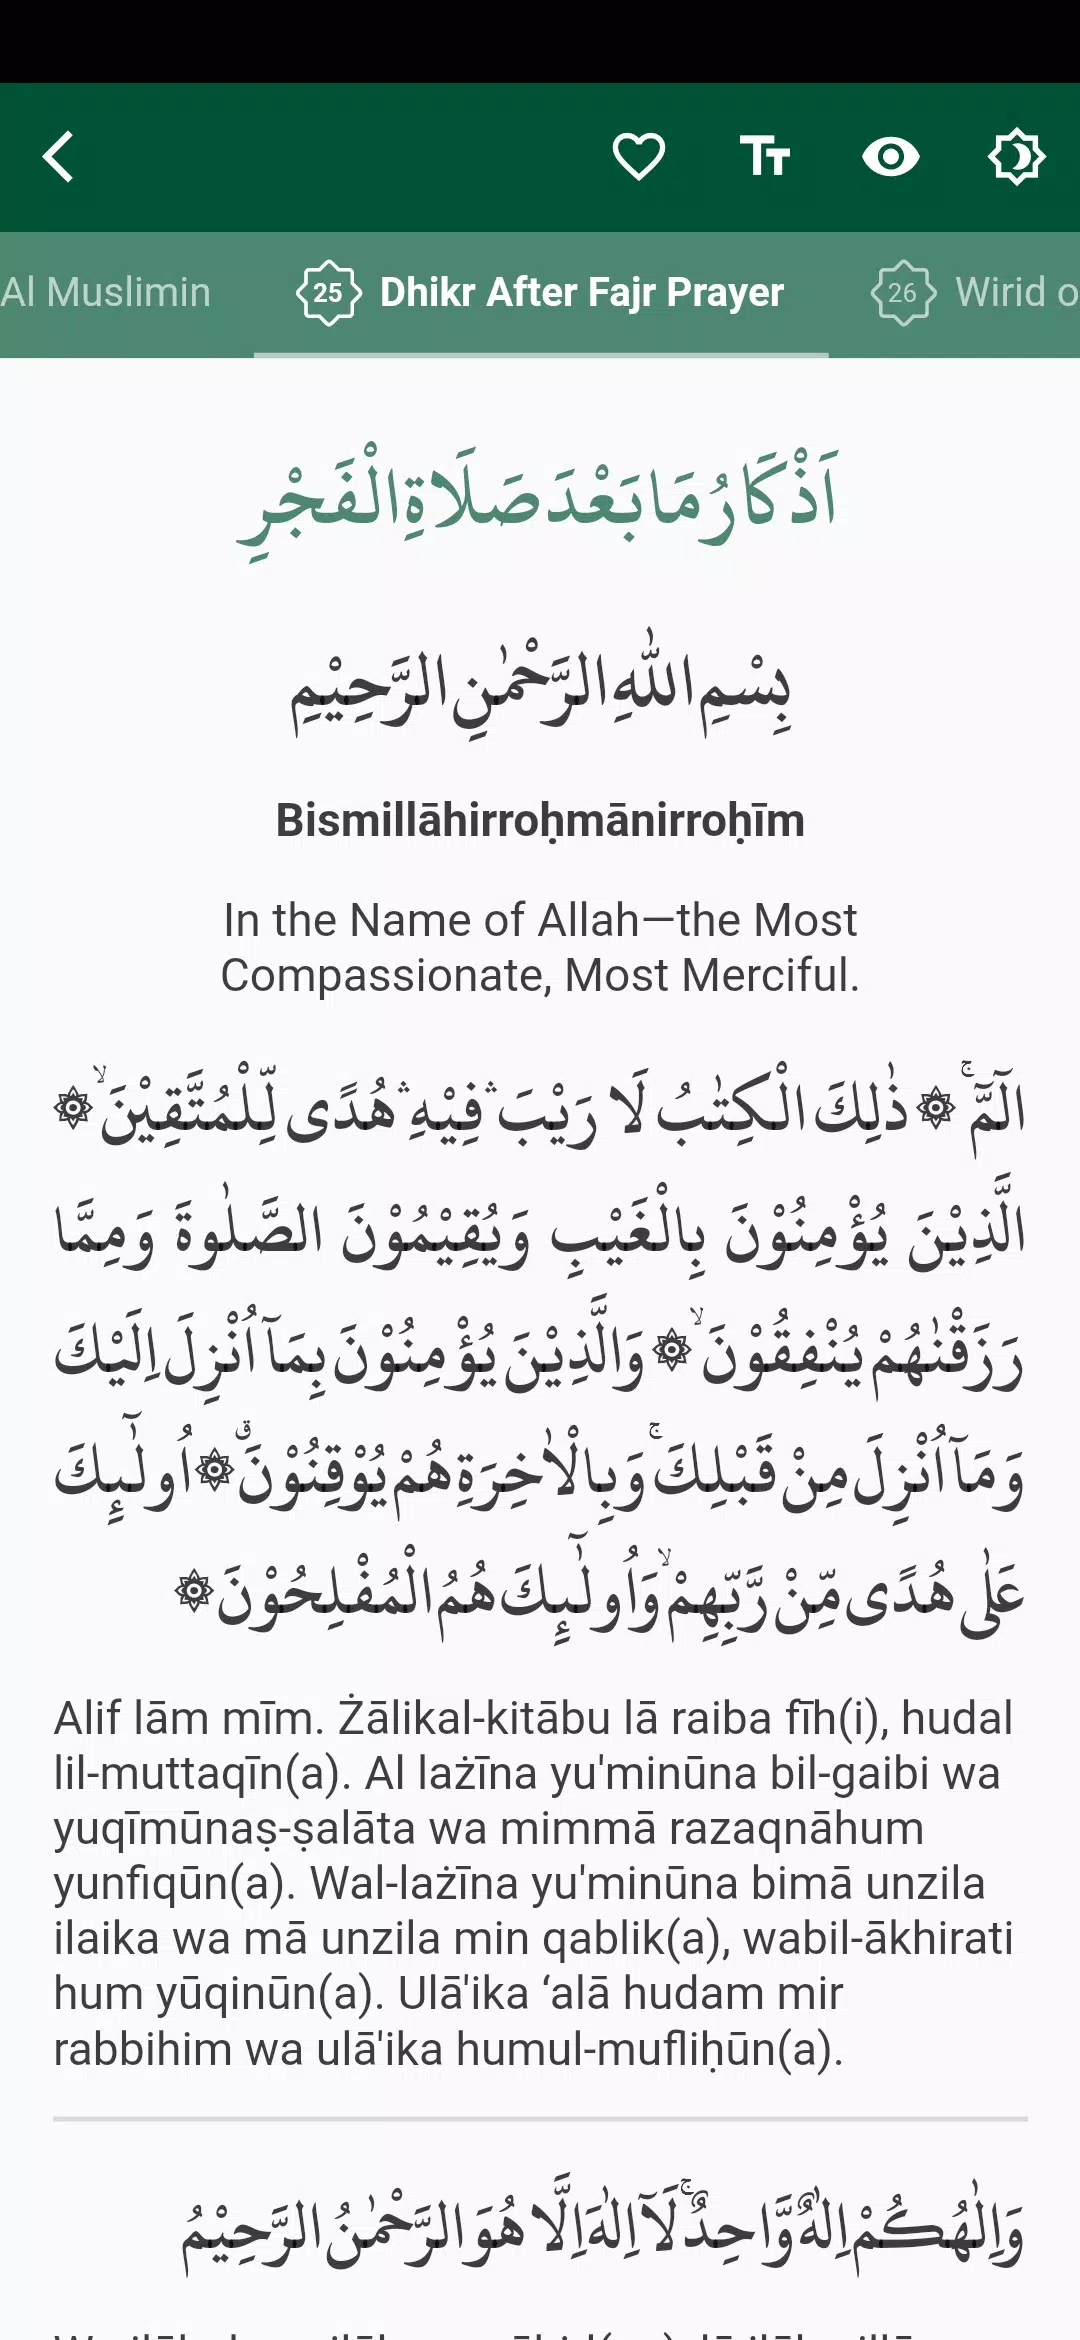 Al Muslimin 25 Dhikr After Fajr Prayer 26 Wirid o
اَذْكَارُ مَا بَعْدَ صَلَاةِ الْفَجْرِ
بِسْمِ اللّٰهِ الرَّحْمٰنِ الرَّحِيْمِ
Bismillāhirroḥmānirroḥīm
In the Name of Allah—the Most
Compassionate, Most Merciful.
الۤمّۤ ۚ ۞ ذٰلِكَ الْكِتٰبُ لَا رَيْبَ ۛ فِيْهِ ۛ هُدًى لِّلْمُتَّقِيْنَ ۙ ۞
الَّذِيْنَ يُؤْمِنُوْنَ بِالْغَيْبِ وَيُقِيْمُوْنَ الصَّلٰوةَ وَمِمَّا
رَزَقْنٰهُمْ يُنْفِقُوْنَ ۙ ۞ وَالَّذِيْنَ يُؤْمِنُوْنَ بِمَآ اُنْزِلَ اِلَيْكَ
وَمَآ اُنْزِلَ مِنْ قَبْلِكَ ۚ وَبِالْاٰخِرَةِ هُمْ يُوْقِنُوْنَ ۗ ۞ اُولٰۤىِٕكَ
عَلٰى هُدًى مِّنْ رَّبِّهِمْ ۙ وَاُولٰۤىِٕكَ هُمُ الْمُفْلِحُوْنَ ۞
Alif lām mīm. Żālikal-kitābu lā raiba fīh(i), hudal
lil-muttaqīn(a). Al lażīna yu'minūna bil-gaibi wa
yuqīmūnaṣ-ṣalāta wa mimmā razaqnāhum
yunfiqūn(a). Wal-lażīna yu'minūna bimā unzila
ilaika wa mā unzila min qablik(a), wabil-ākhirati
hum yūqinūn(a). Ulā'ika ‘alā hudam mir
rabbihim wa ulā'ika humul-mufliḥūn(a).
وَاِلٰهُكُمْ اِلٰهٌ وَّاحِدٌ ۚ لَآ اِلٰهَ اِلَّا هُوَ الرَّحْمٰنُ الرَّحِيْمُ